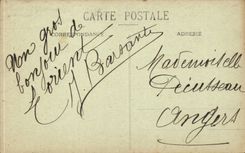 CARTE POSTALE
CORRESPONDANCE
ADRESSE
Un gros
bonjour de
Lorient
Mademoiselle
Angers